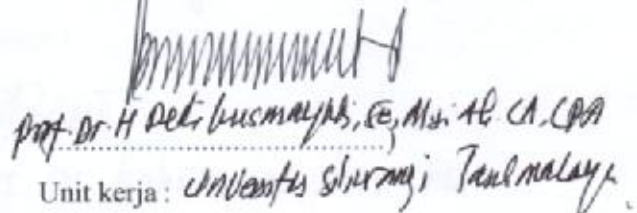 Prof. Dr. H. Dedi Kusmayadi, SE, M.Si. Ak. CA. CPA
Unit kerja : Universitas Siliwangi Tasikmalaya